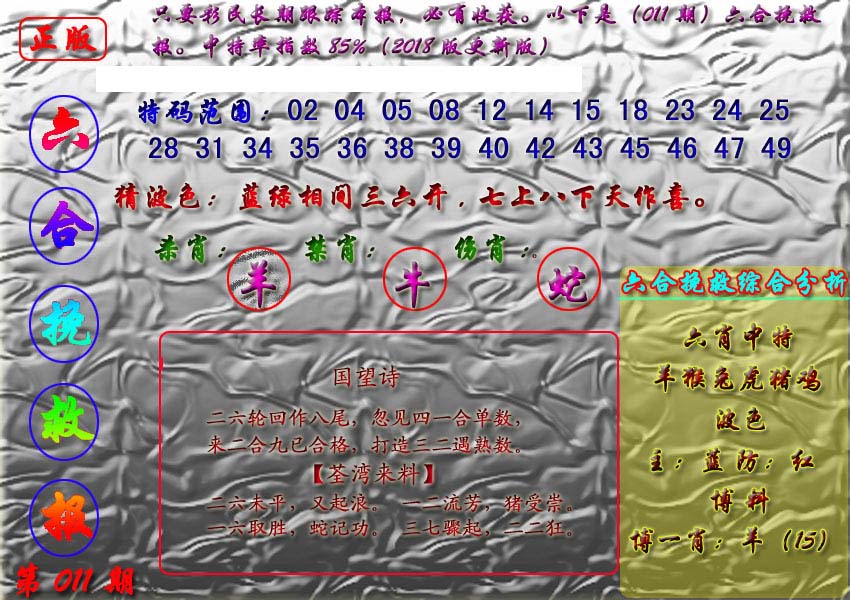 正版
只要彩民长期跟踪本报，必有收获。以下是（011期）六合挽救
报。中特率指数85%（2018版更新版）
特码范围：02 04 05 08 12 14 15 18 23 24 25
28 31 34 35 36 38 39 40 42 43 45 46 47 49
猜波色：蓝绿相间三六开，七上八下天作喜。
杀肖：羊 禁肖：牛 伤肖：蛇
六合挽救报
第011期
国望诗
二六轮回作八尾，忽见四一合单数，
来二合九已合格，打造三二遇熟数。
【荃湾来料】
二六未平，又起浪。 一二流芳，猪受崇。
一六取胜，蛇记功。 三七骤起，二二狂。
六合挽救综合分析
六肖中特
羊猴兔虎猪鸡
波色
主：蓝防：红
博料
博一肖：羊（15）